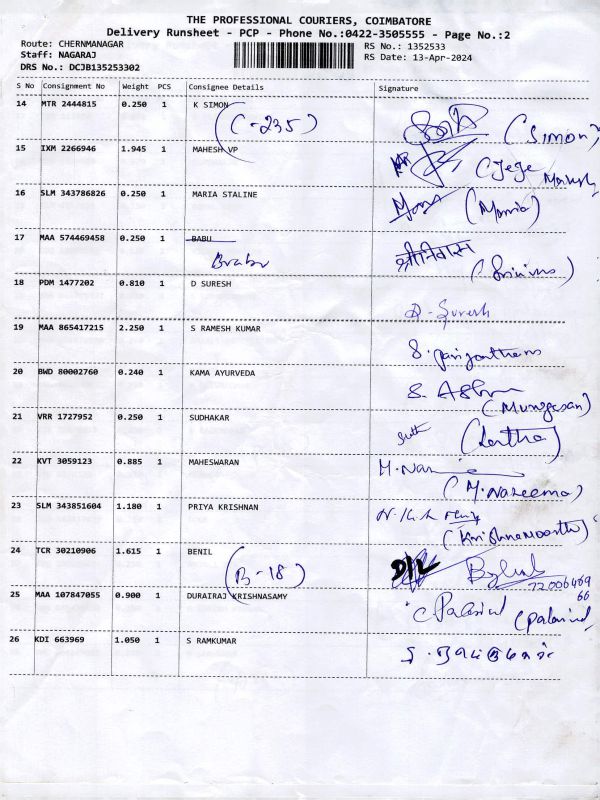 THE PROFESSIONAL COURIERS, COIMBATORE
Delivery Runsheet - PCP - Phone No.:0422-3505555 - Page No.:2
Route: CHERNMANAGAR RS No.: 1352533
Staff: NAGARAJ RS Date: 13-Apr-2024
DRS No.: DCJB135253302
S No Consignment No Weight PCS Consignee Details Signature
14 MTR 2444815 0.250 1 K SIMON
(C-235) (Simon)
15 IXM 2266946 1.945 1 MAHESH VP
16 SLM 343786826 0.250 1 MARIA STALINE
(Maria)
17 MAA 574469458 0.250 1 BABU
श्रीनिवास
18 PDM 1477202 0.810 1 D SURESH
D. Suresh
19 MAA 865417215 2.250 1 S RAMESH KUMAR
20 BWD 80002760 0.240 1 KAMA AYURVEDA
(Murugesan)
21 VRR 1727952 0.250 1 SUDHAKAR
(Latha)
22 KVT 3059123 0.885 1 MAHESWARAN
(M.Nazeema)
23 SLM 343851604 1.180 1 PRIYA KRISHNAN
(Krishnamoorthi)
24 TCR 30210906 1.615 1 BENIL
(B-18) D/L
25 MAA 107847055 0.900 1 DURAIRAJ KRISHNASAMY
26 KDI 663969 1.050 1 S RAMKUMAR